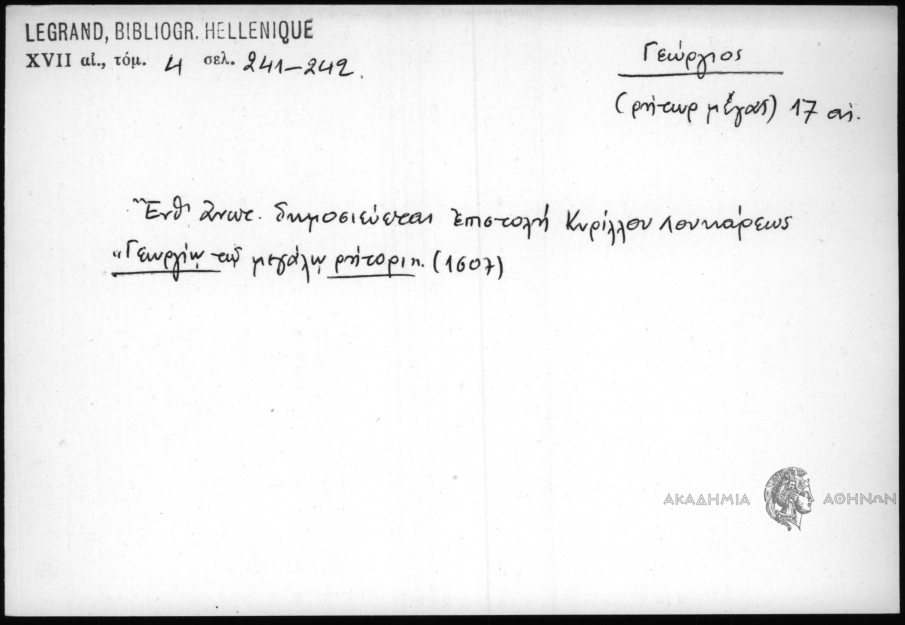 LEGRAND, BIBLIOGR. HELLENIQUE
XVII αἰ., τόμ. 4 σελ. 241-242.
Γεώργιος
(ρήτωρ μέγας) 17 αἰ.
Ἔνθ' ἀνωτ. δημοσιεύεται ἐπιστολή Κυρίλλου Λουκάρεως
"Γεωργίῳ τῷ μεγάλῳ ρήτορι". (1607)
ΑΚΑΔΗΜΙΑ ΑΘΗΝΩΝ